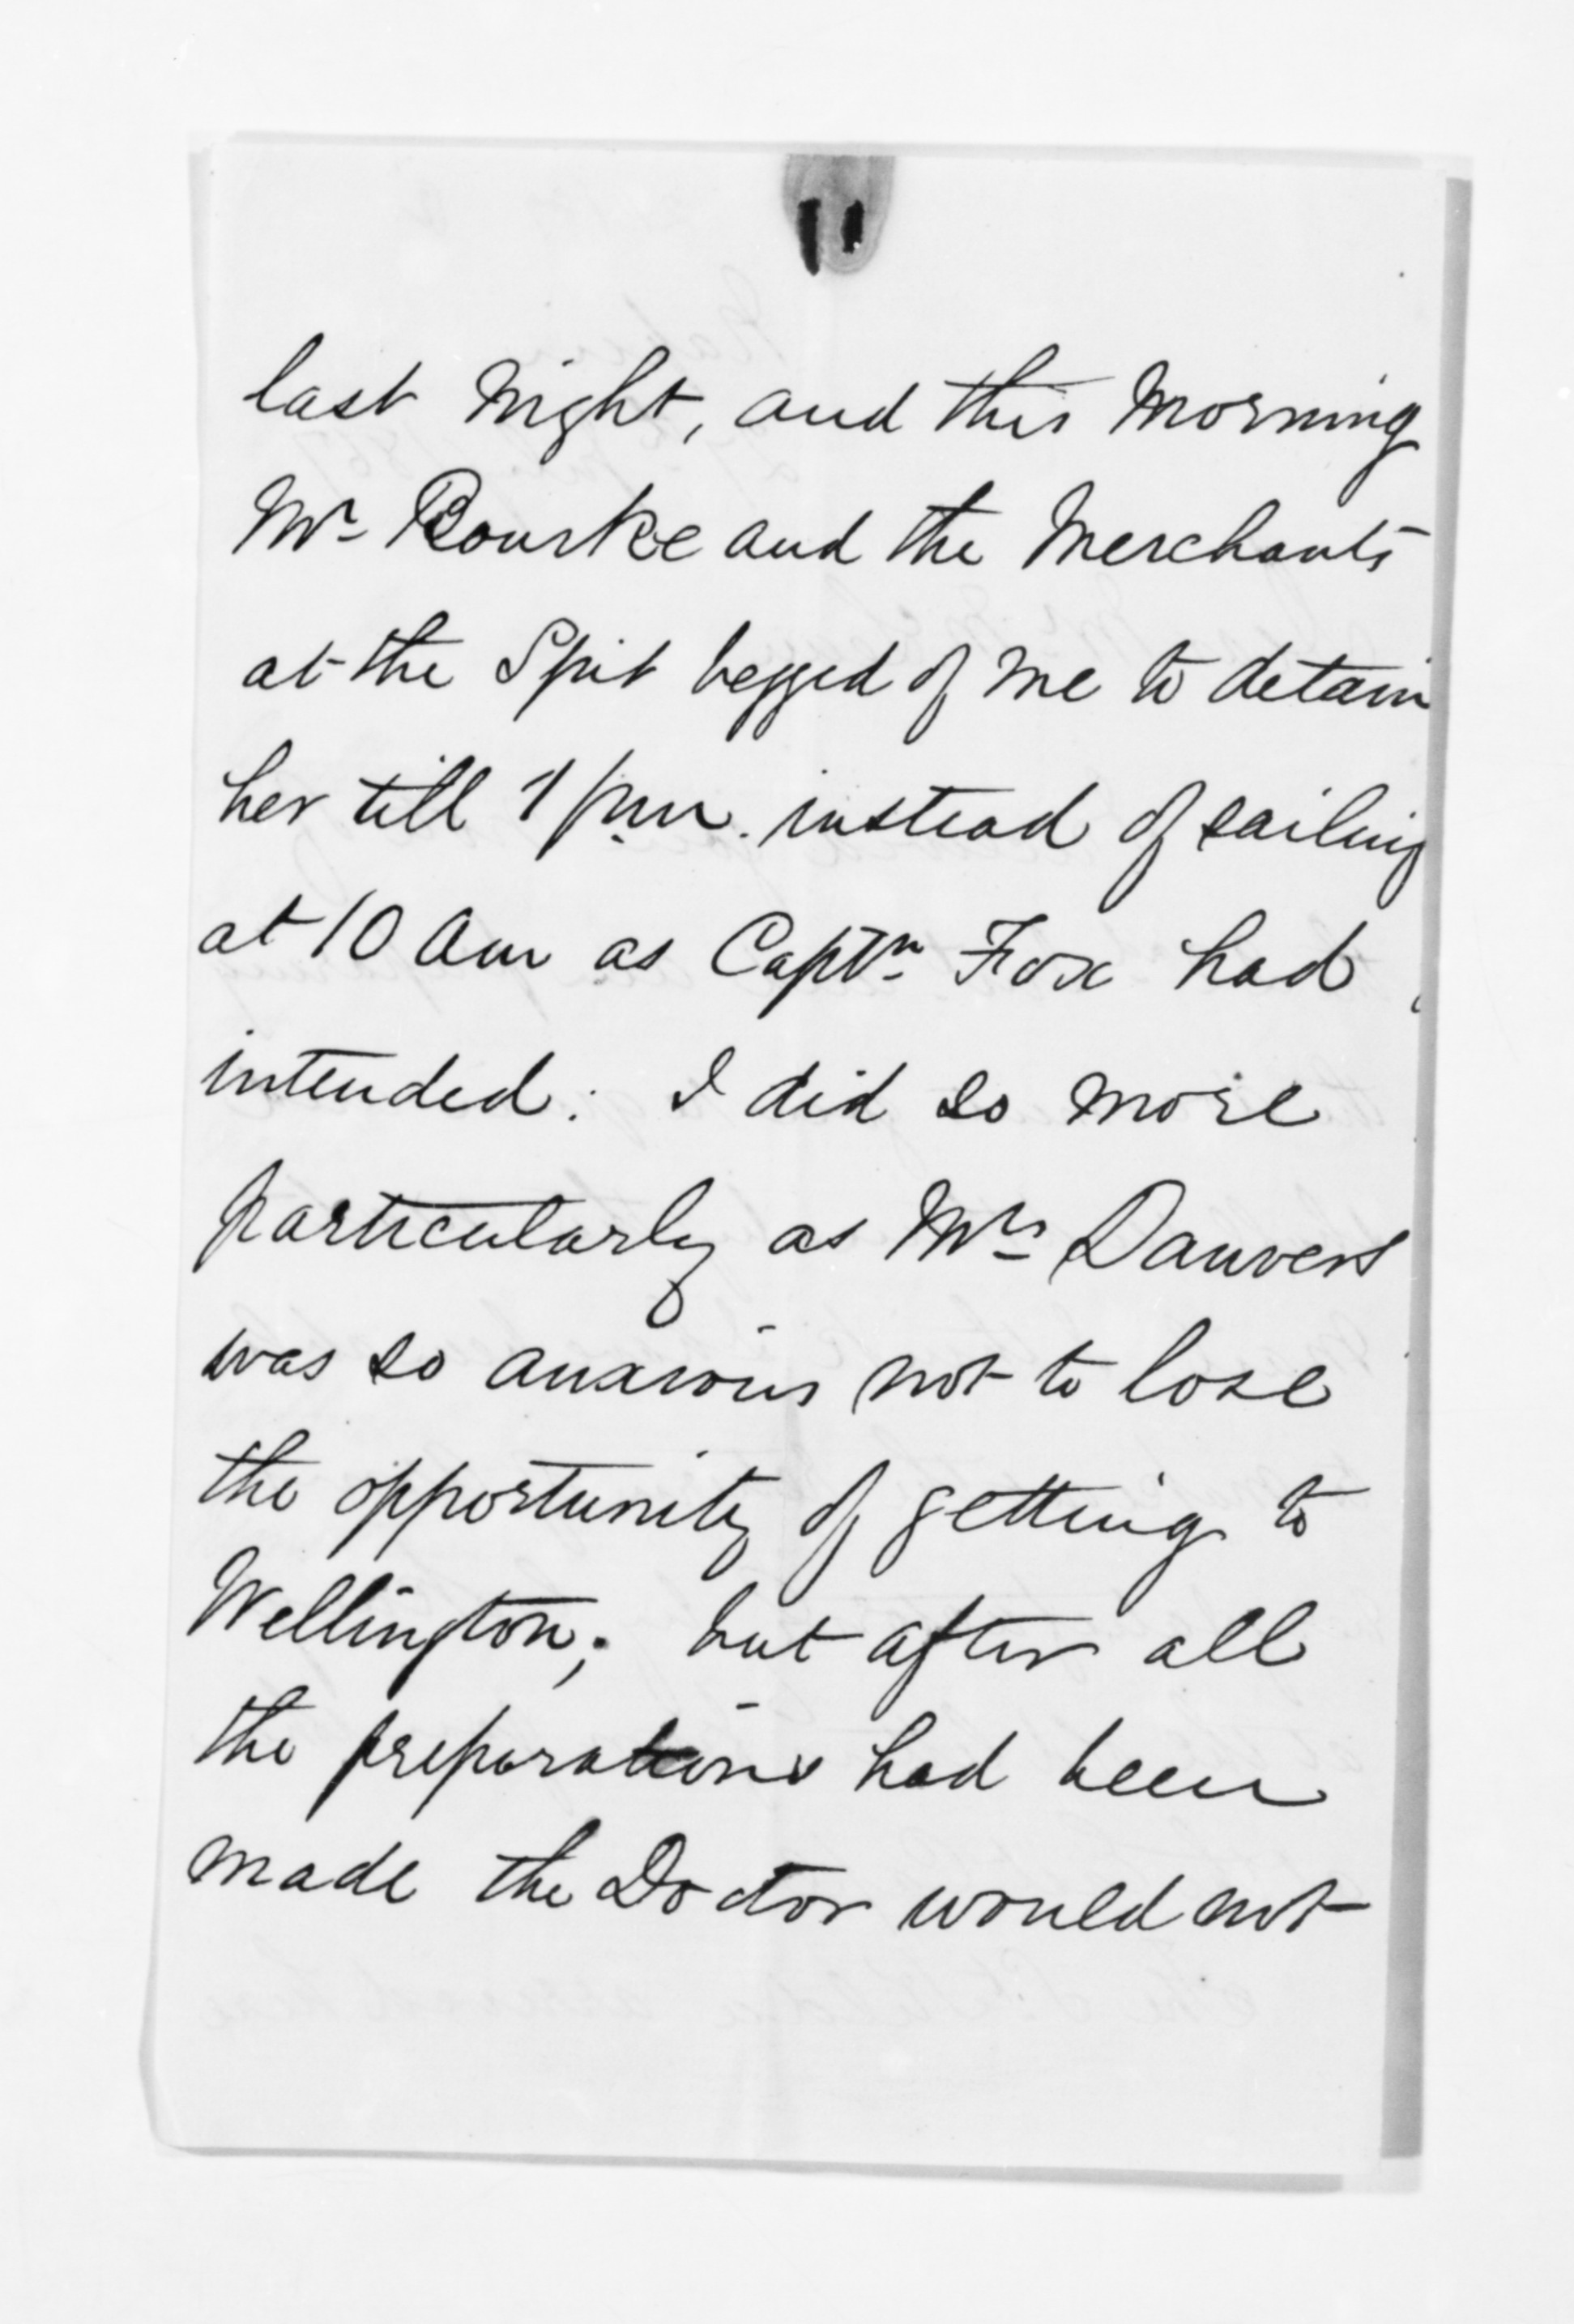 last night, and this morning
Mr Bourke and the Merchants
at the Spit begged of me to detain
her till 1 pm. instead of sailing
at 10 am as Captn Fox had
intended: I did so more
particularly as Mrs Danvers
was so anxious not to lose
the opportunity of getting to
Wellington; but after all
the preparations had been
made the Doctor would not